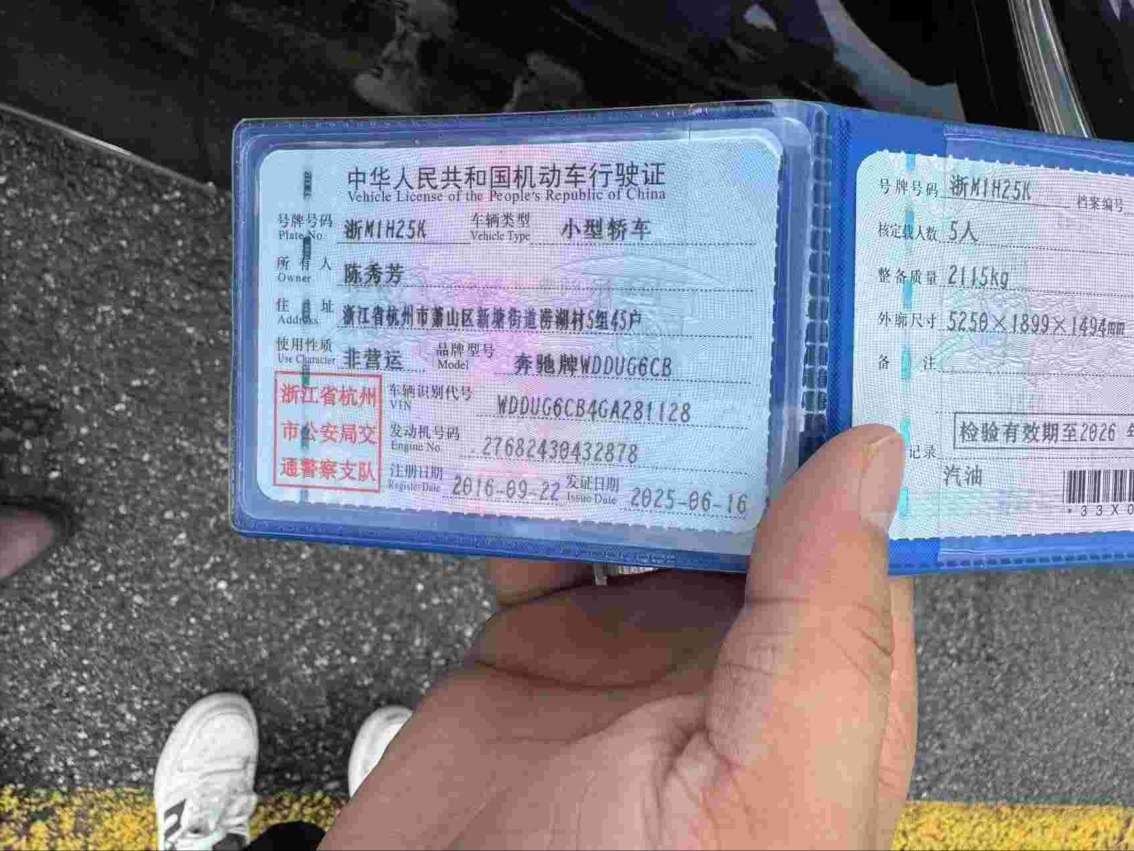 中华人民共和国机动车行驶证
Vehicle License of the People's Republic of China
号牌号码 浙M1H25K 车辆类型 小型轿车
Plate No. Vehicle Type
所有人 陈秀芳
Owner
住址 浙江省杭州市萧山区新塘街道涝湖村5组45户
Address
使用性质 非营运 品牌型号 奔驰牌WDDUG6CB
Use Character Model
浙江省杭州
市公安局交
通警察支队
车辆识别代号 WDDUG6CB4GA281128
VIN
发动机号码 27682430432878
Engine No.
注册日期 2016-09-22 发证日期 2025-06-16
Register Date Issue Date
号牌号码 浙M1H25K 档案编号
核定载人数 5人
整备质量 2115kg
外廓尺寸 5250×1899×1494mm
备注
检验有效期至2026年
记录
汽油
*33X0